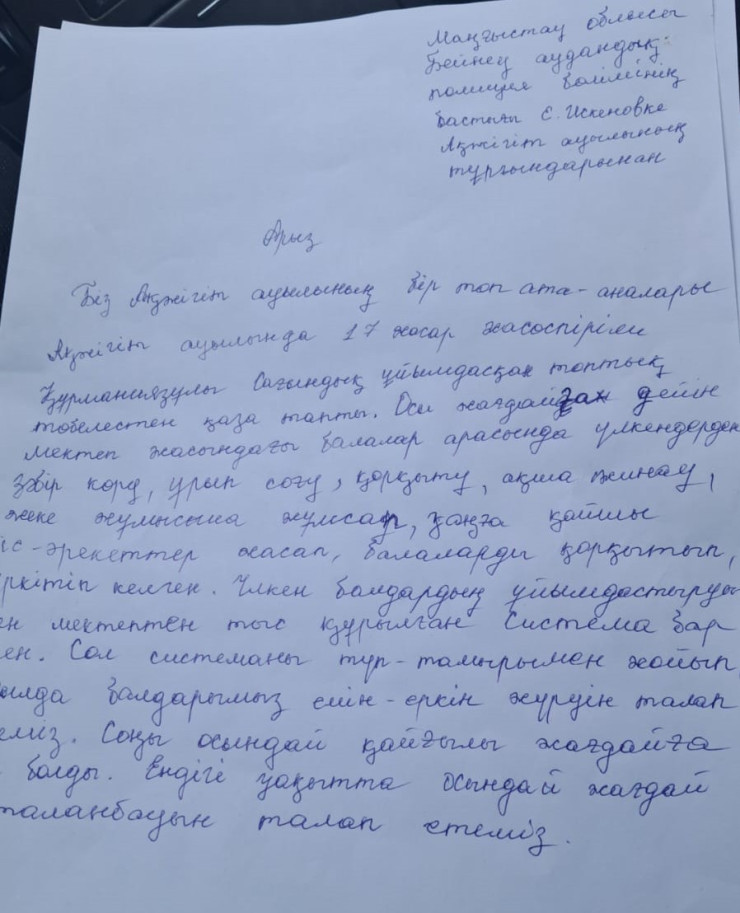 Маңғыстау облысы
Бейнеу аудандық
полиция бөлімінің
бастығы Е. Искеновке
Ақжігіт ауылының
тұрғындарынан
Арыз
Біз Ақжігіт ауылының бір топ ата-аналары
Ақжігіт ауылында 17 жасар жасөспірім
Құрманиязұлы Сағындық ұйымдасқан топтық
төбелестен қаза тапты. Осы жағдайған дейін
мектеп жасындағы балалар арасында үлкендерден
зәбір көру, ұрып соғу, қорқыту, ақша жинау,
жеке жұмысына жұмсап, заңға қайшы
іс-әрекеттер жасап, балаларды қорқытып,
ркітіп келген. Үлкен балдардың ұйымдастыруы
ен мектептен тыс құрылған система бар
ен. Сол системаны түп-тамырымен жойып
ылда балдарымыз еmін-еркін жүруін талап
еміз. Соңы осындай қайғылы жағдайға
болды. Ендігі уақытта осындай жағдай
таланбауын талап етеміз.